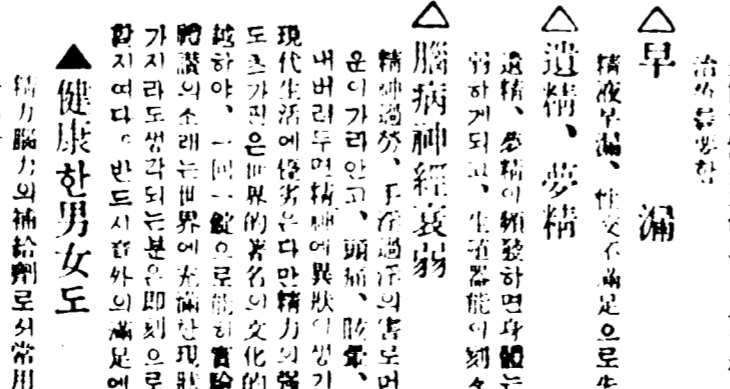 治가 필요한
△早漏
精液早漏、性交不滿足으로 生
△遺精、夢精
遺精、夢精이 頻發하면 身體는
弱하게되고、生殖器能이 刻々
△腦病神經衰弱
精神過勞、手淫過淫의 害로 머
운이 가라안고、頭痛、眩暈、
내버려두면 精神에 異狀이 생기
現代生活에 優劣은 다만 精力의 强
도 쓰가진은 世界的 著名의 文化的
越하야、一回一錠으로 能히 實驗
禮讚의 소래는 世界에 充滿한 現狀
가지라도 생각되는 분은 即刻으로
합지여다。반드시 意外의 滿足에
▲健康한男女도
精力腦力의 補給劑로서 常用